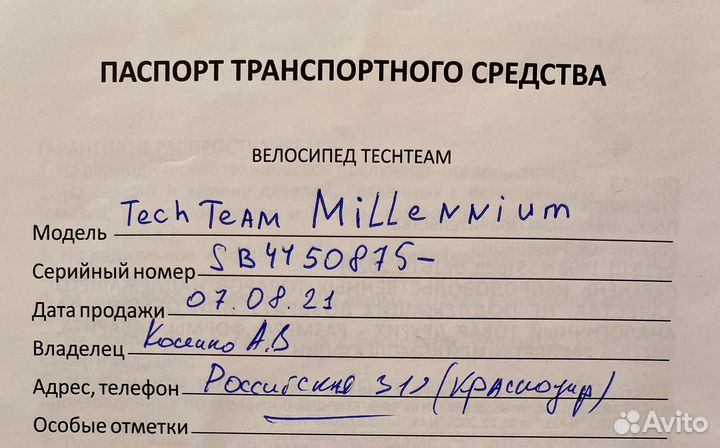 ПАСПОРТ ТРАНСПОРТНОГО СРЕДСТВА
ВЕЛОСИПЕД TECHTEAM
Модель TechTeam Millennium
Серийный номер SB4450875-
Дата продажи 07.08.21
Владелец Косенко А.В
Адрес, телефон Российская (Краснодар)
Особые отметки
Avito